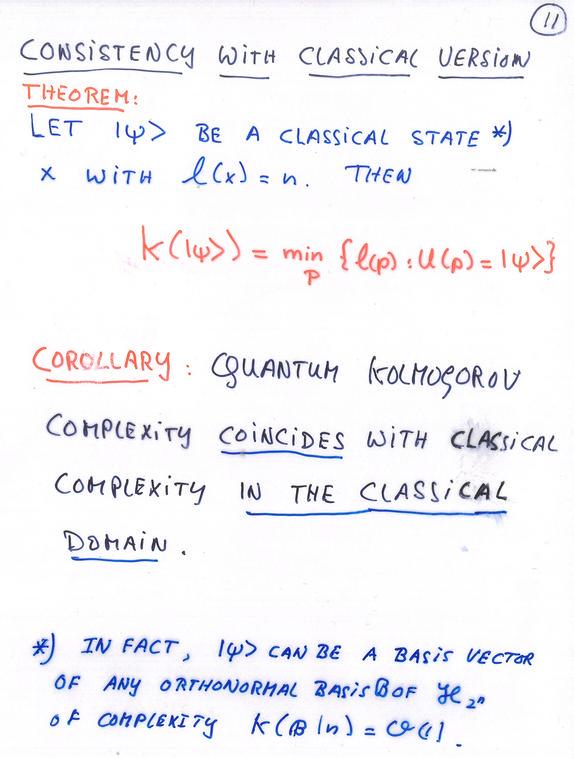 11
CONSISTENCY WITH CLASSICAL VERSION
THEOREM:
LET |ψ> BE A CLASSICAL STATE *)
x WITH l(x) = n. THEN
K(|ψ>) = min {l(p) : U(p) = |ψ>}
p
COROLLARY : QUANTUM KOLMOGOROV
COMPLEXITY COINCIDES WITH CLASSICAL
COMPLEXITY IN THE CLASSICAL
DOMAIN.
*) IN FACT, |ψ> CAN BE A BASIS VECTOR
OF ANY ORTHONORMAL BASIS B OF ℋ₂ⁿ
OF COMPLEXITY K(B|n) = O(1).